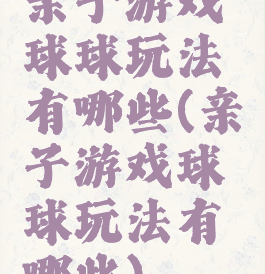 亲子游戏
球球玩法
有哪些(亲
子游戏球
球玩法有
哪些)